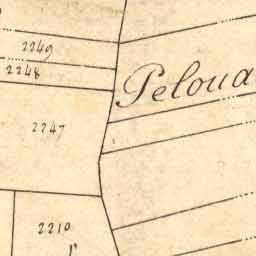 2249
2248
Peloua
2247
2210